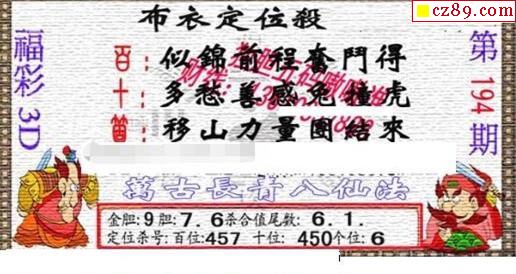 cz89.com
布衣定位殺
福彩3D
第194期
百：似錦前程奮鬥得
十：多愁善感兔撞虎
個：移山力量團結來
萬古長青八仙法
金胆：9胆：7.6杀合值尾数：6.1.
定位杀号：百位：457 十位：450个位：6